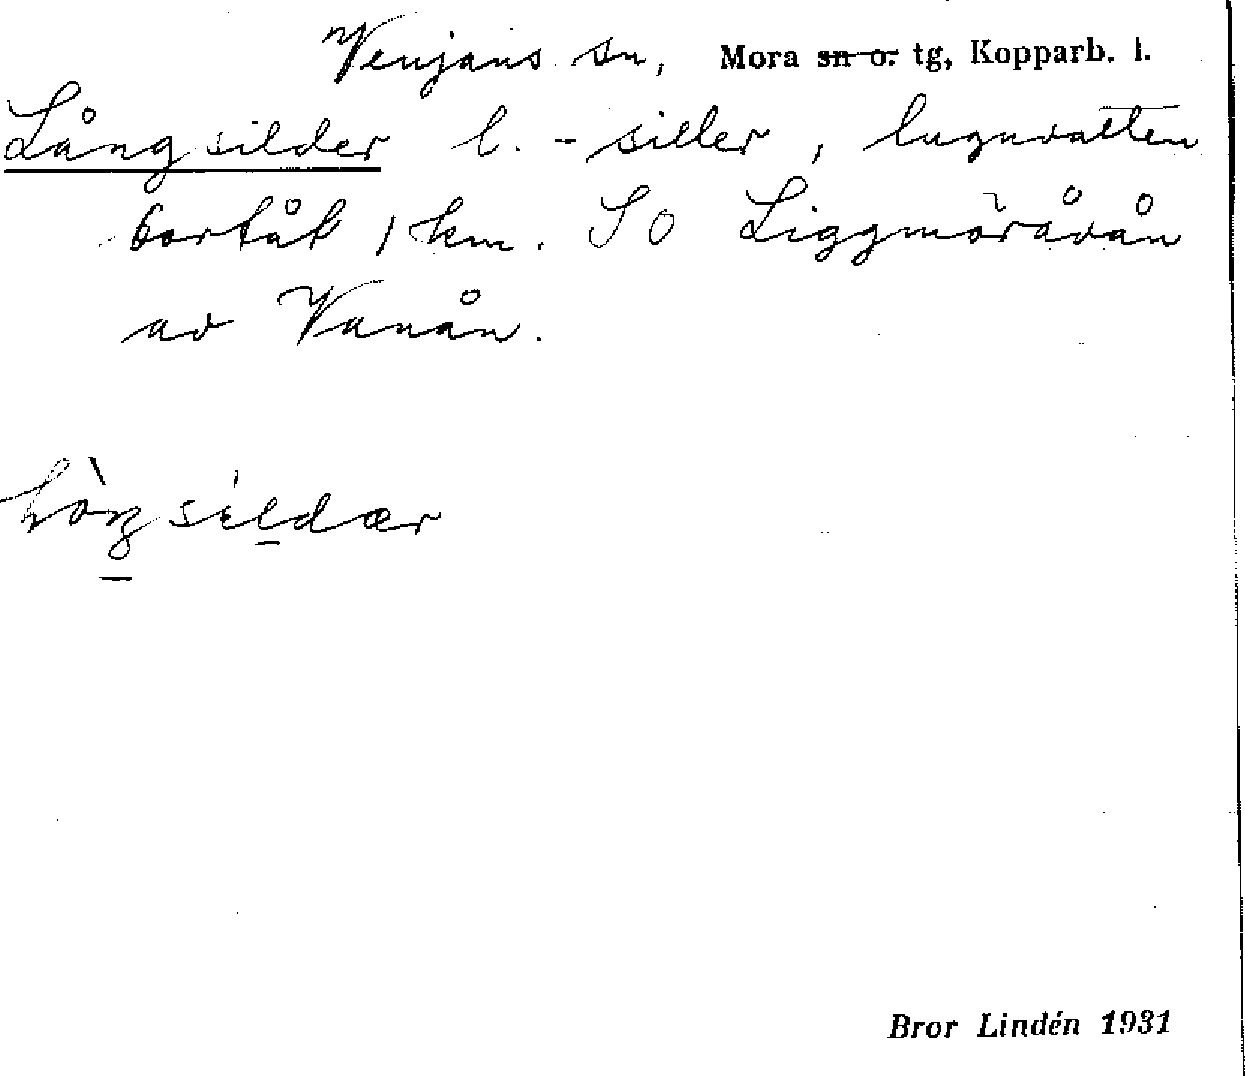 Venjans sn, Mora sn o. tg, Kopparb. l.
Långsilder l. -siller, lugnvatten
bortåt 1 km. SO Liggmöråvån
av Vanån.
lòŋsildær
Bror Lindén 1931